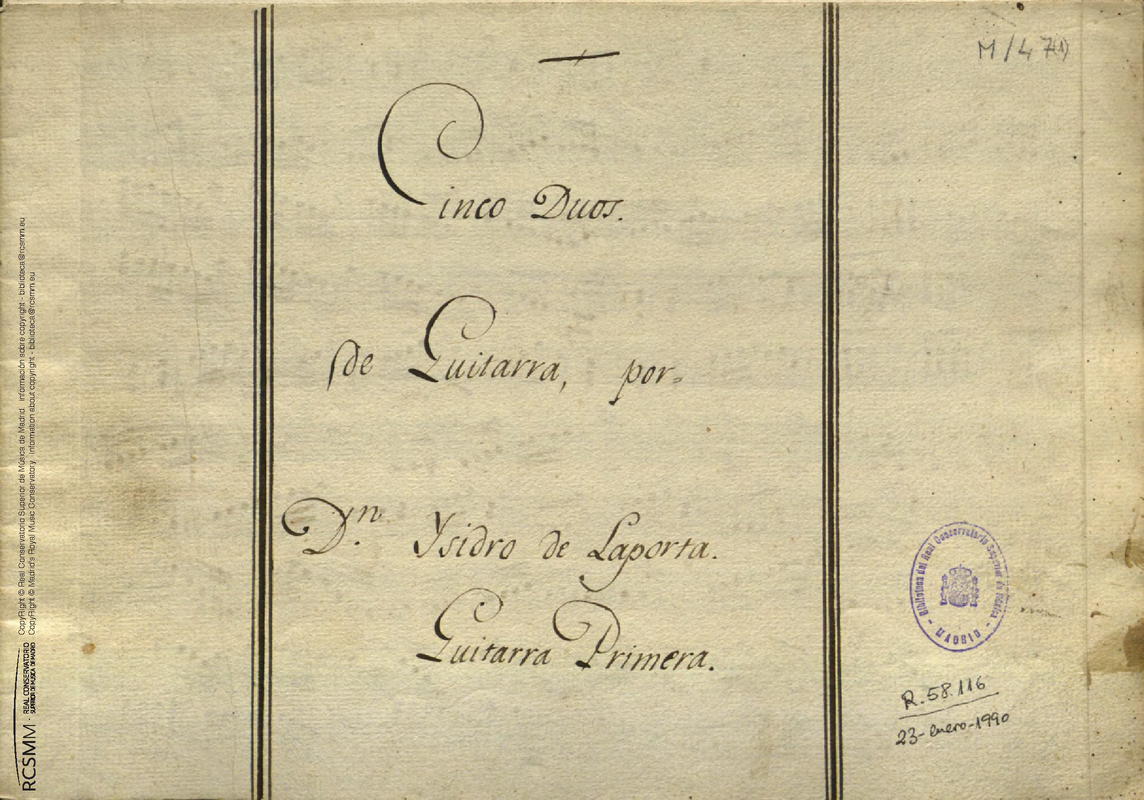 M/47(1)
Cinco Duos.
de Guitarra, por=
Dn. Ysidro de Laporta.
Guitarra Primera.
Biblioteca del Real Conservatorio Superior de Música
- MADRID -
R. 58.116
23-enero-1990
CopyRight © Real Conservatorio Superior de Música de Madrid información sobre copyright - biblioteca@rcsmm.eu
CopyRight © Madrid's Royal Music Conservatory Information about copyright - biblioteca@rcsmm.eu
RCSMM · REAL CONSERVATORIO
SUPERIOR DE MÚSICA DE MADRID